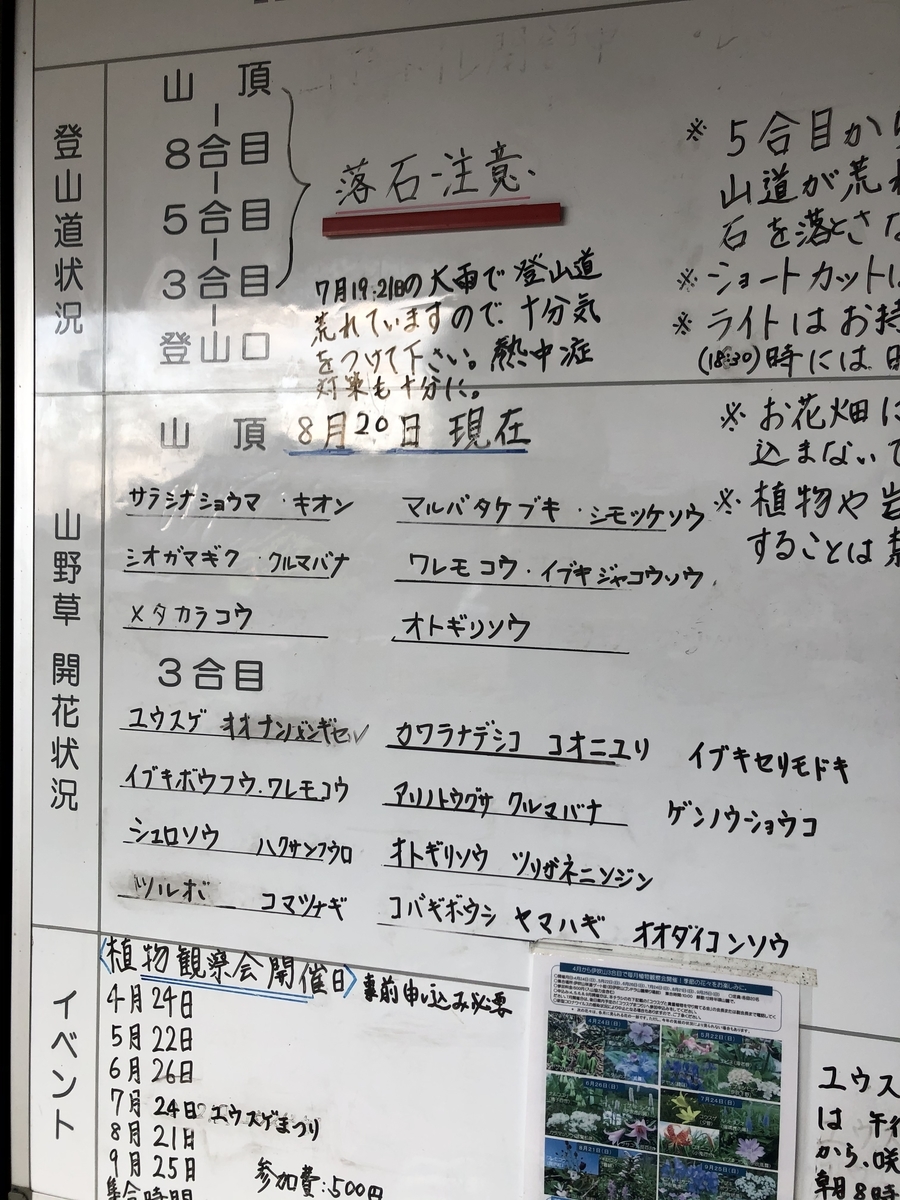 登山道状況
山 頂
8合目
5合目
3合目
登山口
落石注意、
7月19.21日の大雨で登山道
荒れていますので、十分気
をつけて下さい。熱中症
対策も十分に。
※ 5合目か
山道が荒
石を落とさ
※ショートカット
※ ライトはお持
(18:30)時には
山野草 開花状況
山 頂 8月20日 現在
サラシナショウマ ・キオン マルバタケブキ・シモツケソウ
シオガマギク ・クルマバナ ワレモコウ・イブキジャコウソウ
メタカラコウ オトギリソウ
※ お花畑に
込まないで
※ 植物や岩
することは禁
3合目
ユウスゲ オオナンバンギセ カワラナデシコ コオニユリ イブキセリモドキ
イブキボウフウ.ワレモコウ アリノトウグサ クルマバナ ゲンノウショウコ
シュロソウ ハクサンフウロ オトギリソウ ツリガネニンジン
ツルボ コマツナギ コバギボウシ ヤマハギ オオダイコンソウ
イベント
〈植物観察会開催日〉事前申し込み必要
4月24日
5月22日
6月26日
7月24日 ユウスゲまつり
8月21日
9月25日 参加費:500円
集合時間
4月から伊吹山3合目で毎月植物観察会開催！季節の花々をお楽しみに。
4月24日(日)
5月22日(日)
6月26日(日)
7月24日(日)
8月21日(日)
9月25日(日)
ユウス
は 午後
から、咲
朝8時